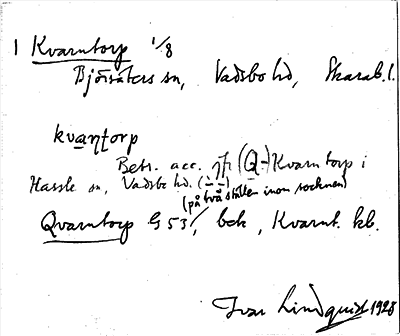 1 Kvarntorp 1/8
Björsäters sn, Vadsbo hd, Skarab. l.
kvaɳʈorp
Betr. acc. jfr (Q-) Kvarntorp i
Hassle sn, Vadsbo hd. (på två ställen inom socknen)
Qvarntorp G 53, bek, Kvarnt. kb.
Ivar Lindquist 1928